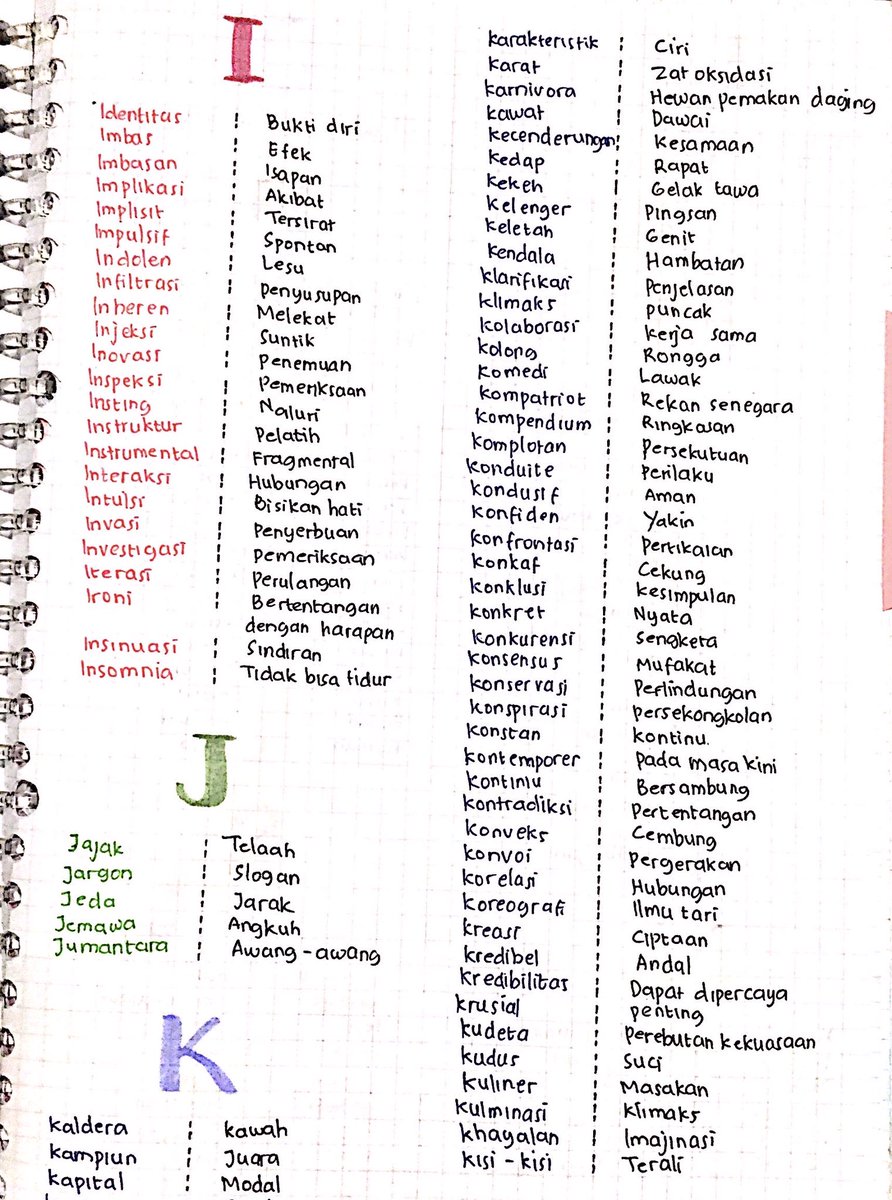 I
Identitas : Bukti diri
Imbas : Efek
Imbasan : Isapan
Implikasi : Akibat
Implisit : Tersirat
Impulsif : Spontan
Indolen : Lesu
Infiltrasi : Penyusupan
Inheren : Melekat
Injeksi : Suntik
Inovasi : Penemuan
Inspeksi : Pemeriksaan
Insting : Naluri
Instruktur : Pelatih
Instrumental : Fragmental
Interaksi : Hubungan
Intuisi : Bisikan hati
Invasi : Penyerbuan
Investigasi : Pemeriksaan
Iterasi : Perulangan
Ironi : Bertentangan
dengan harapan
Insinuasi : Sindiran
Insomnia : Tidak bisa tidur
J
Jajak : Telaah
Jargon : Slogan
Jeda : Jarak
Jemawa : Angkuh
Jumantara : Awang-awang
K
kaldera : kawah
kampiun : Juara
kapital : Modal
karakteristik : Ciri
karat : Zat oksidasi
karnivora : Hewan pemakan daging
kawat : Dawai
kecenderungan : Kesamaan
kedap : Rapat
kekeh : Gelak tawa
kelenger : Pingsan
keletah : Genit
kendala : Hambatan
klarifikasi : Penjelasan
klimaks : puncak
kolaborasi : kerja sama
kolong : Rongga
komedi : Lawak
kompatriot : Rekan senegara
kompendium : Ringkasan
komplotan : Persekutuan
konduite : Perilaku
kondusif : Aman
konfiden : Yakin
konfrontasi : Pertikaian
konkaf : Cekung
konklusi : kesimpulan
konkret : Nyata
konkurensi : Sengketa
konsensus : Mufakat
konservasi : Perlindungan
konspirasi : persekongkolan
konstan : kontinu.
kontemporer : pada masa kini
kontinu : Bersambung
kontradiksi : Pertentangan
konveks : Cembung
konvoi : Pergerakan
korelasi : Hubungan
koreografi : Ilmu tari
kreasi : Ciptaan
kredibel : Andal
kredibilitas : Dapat dipercaya
krusial : penting
kudeta : Perebutan kekuasaan
kudus : Suci
kuliner : Masakan
kulminasi : klimaks
khayalan : Imajinasi
kisi-kisi : Terali